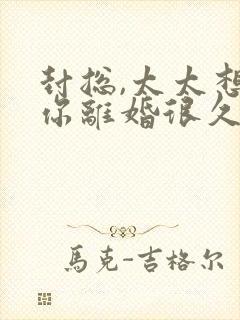 封總,太太想
你離婚很久
馬克-吉格尔